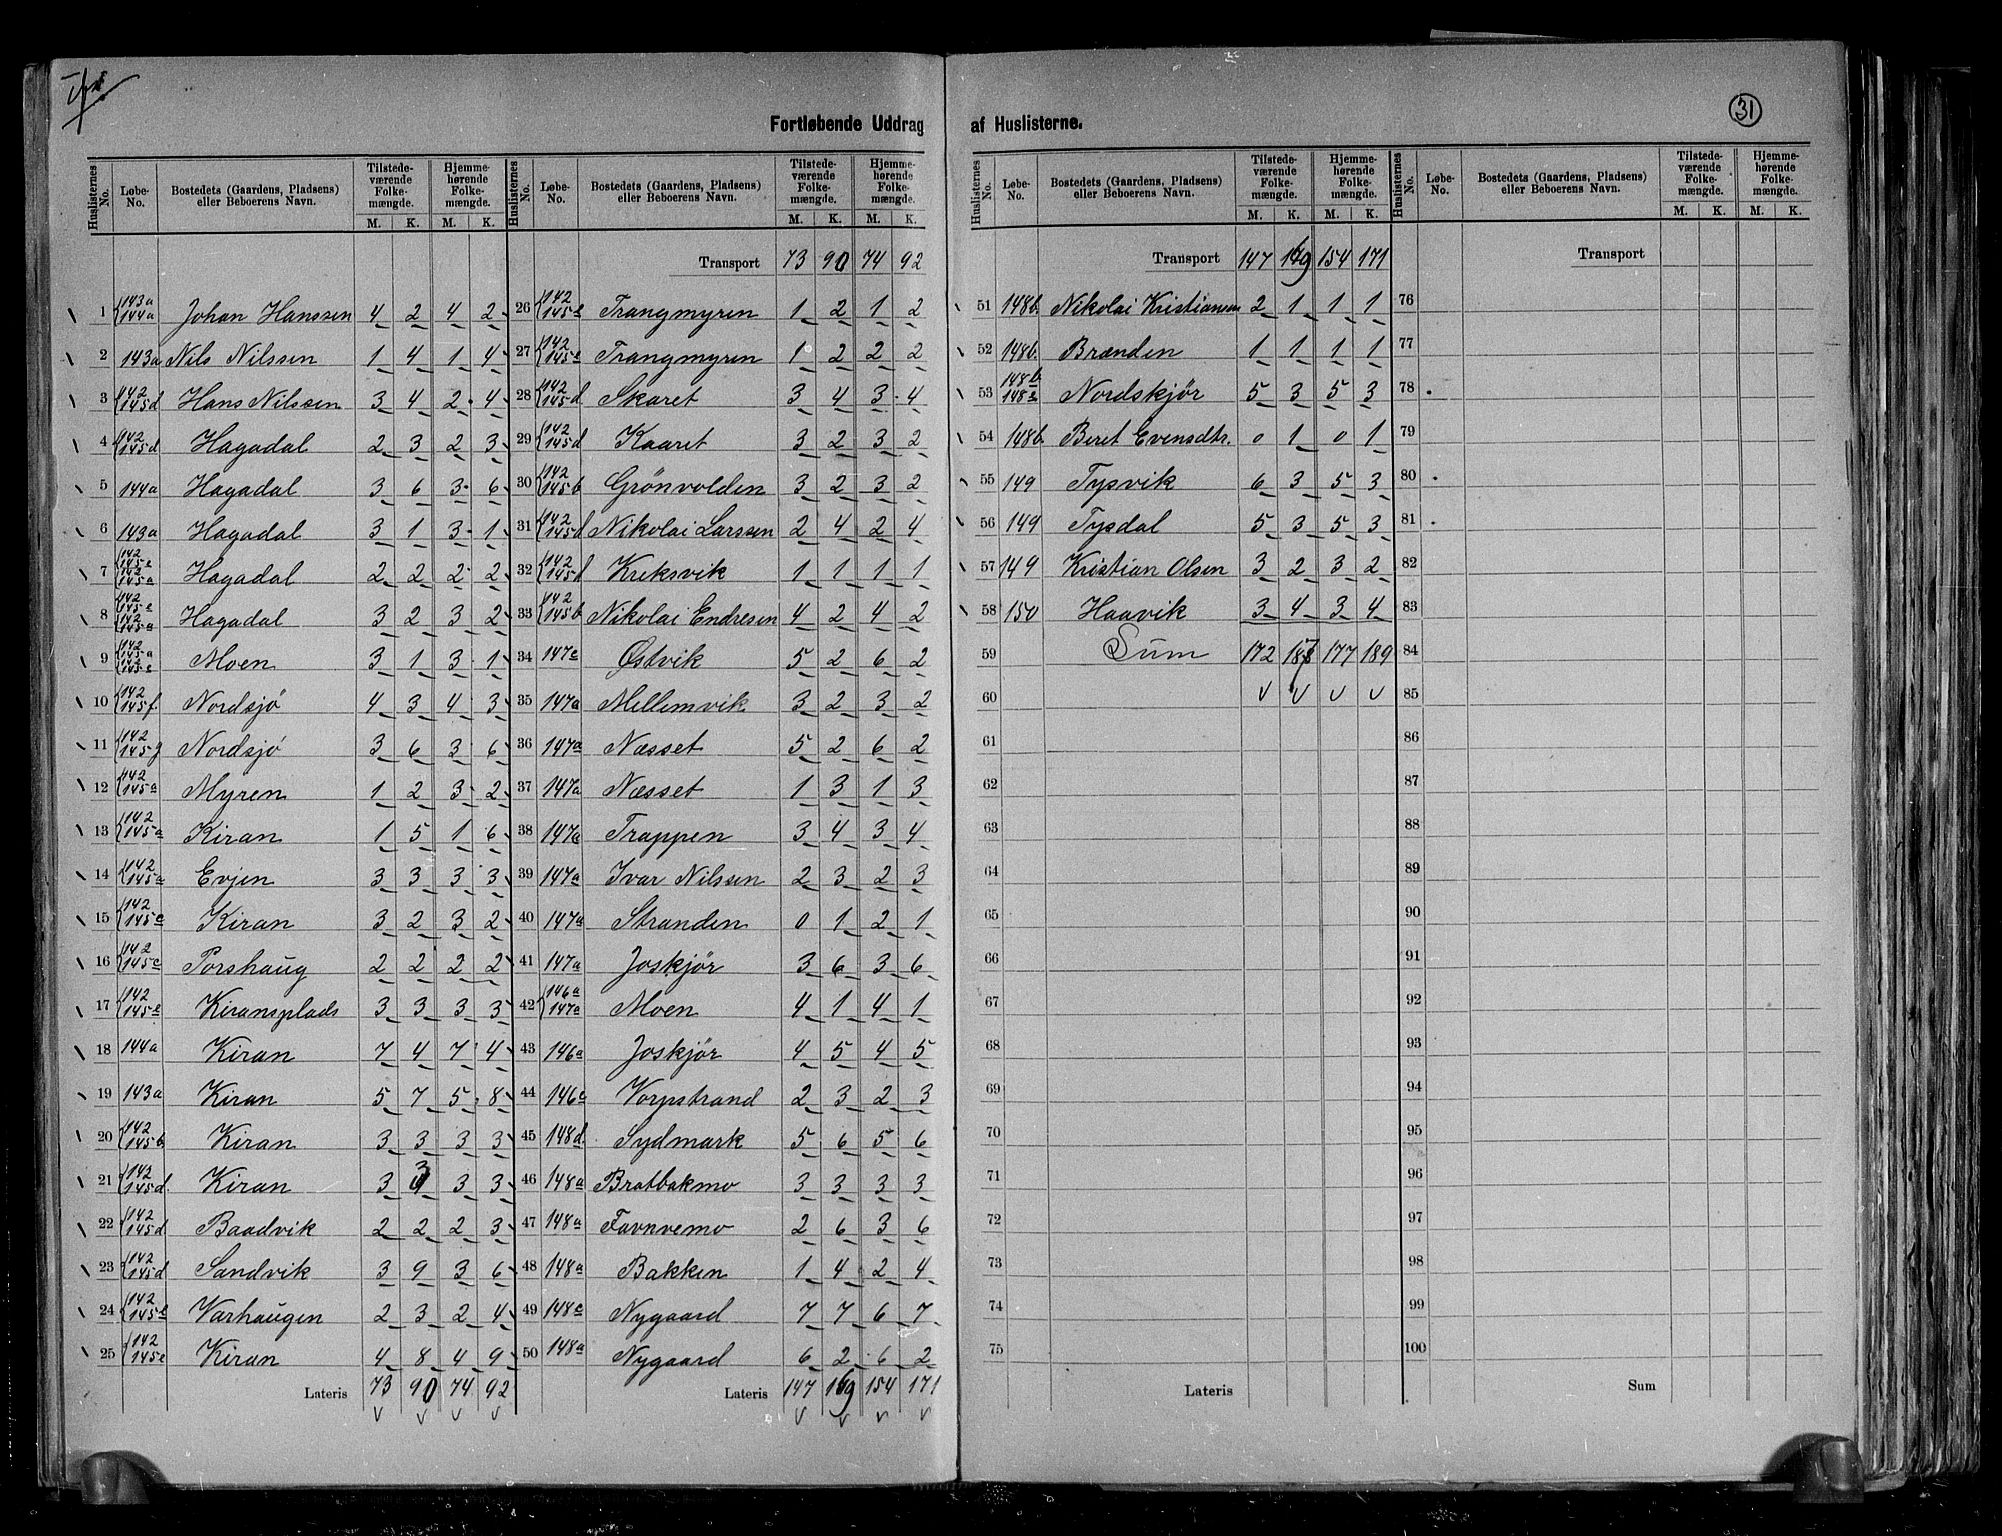 31
Fortløbende Uddrag af Huslisterne.
Huslisternes No. Løbe-No. Bostedets (Gaardens, Pladsens) eller Beboerens Navn. Tilstedeværende Folkemængde. M. K. Hjemmehørende Folkemængde. M. K.
1 143a 144a Johan Hanssen 4 2 4 2
2 143a Nils Nilssen 1 4 1 4
3 142 145d Hans Nilssen 3 4 2 4
4 142 145d Hagadal 2 3 2 3
5 144a Hagadal 3 6 3 6
6 143a Hagadal 3 1 3 1
7 142 145e 142 145a Hagadal 2 2 2 2
8 142 145e 142 145a Hagadal 3 2 3 2
9 142 145a 142 145e Moen 3 1 3 1
10 142 145f Nordsjö 4 3 4 3
11 142 145g Nordsjö 3 6 3 6
12 142 145a Myren 1 2 3 2
13 142 145a Kiran 1 5 1 6
14 142 145a Evjen 3 3 3 3
15 142 145c Kiran 3 2 3 2
16 142 145c Porshaug 2 2 2 2
17 142 145e Kiransplads 3 3 3 3
18 144a Kiran 7 4 7 4
19 143a Kiran 5 7 5 8
20 142 145b Kiran 3 3 3 3
21 142 145d Kiran 3 3 3 3
22 142 145d Baadvik 2 2 2 3
23 142 145d Sandvik 3 9 3 6
24 142 145e Varhaugen 2 3 2 4
25 142 145e Kiran 4 8 4 9
Lateris 73 90 74 92
Huslisternes No. Løbe-No. Bostedets (Gaardens, Pladsens) eller Beboerens Navn. Tilstedeværende Folkemængde. M. K. Hjemmehørende Folkemængde. M. K.
Transport 73 90 74 92
26 142 145e Trangmyren 1 2 1 2
27 142 145e Trangmyren 1 2 2 2
28 142 145d Skaret 3 4 3 4
29 142 145d Kaaret 3 2 3 2
30 142 145b Grönvolden 3 2 3 2
31 142 145d Nikolai Larssen 2 4 2 4
32 142 145d Kreksvik 1 1 1 1
33 142 145b Nikolai Endresen 4 2 4 2
34 147c Østvik 5 2 6 2
35 147a Mellemvik 3 2 3 2
36 147a Næsset 5 2 6 2
37 147a Næsset 1 3 1 3
38 147a Trappen 3 4 3 4
39 147a Ivar Nilssen 2 3 2 3
40 147a Stranden 0 1 2 1
41 147a Joskjör 3 6 3 6
42 146a 147a Moen 4 1 4 1
43 146a Joskjör 4 5 4 5
44 146c Vorpstrand 2 3 2 3
45 148d Sydmark 5 6 5 6
46 148a Bratbakmo 3 3 3 3
47 148a Favnvemo 2 6 3 6
48 148a Bakken 1 4 2 4
49 148c Nygaard 7 7 6 7
50 148a Nygaard 6 2 6 2
Lateris 147 169 154 171
Huslisternes No. Løbe-No. Bostedets (Gaardens, Pladsens) eller Beboerens Navn. Tilstedeværende Folkemængde. M. K. Hjemmehørende Folkemængde. M. K.
Transport 147 169 154 171
51 148b Nikolai Kristiansen 2 1 1 1
52 148b Brænden 1 1 1 1
53 148b 148e Nordskjör 5 3 5 3
54 148b Beret Evensdtr. 0 1 0 1
55 149 Tysvik 6 3 5 3
56 149 Tysdal 5 3 5 3
57 149 Kristian Olsen 3 2 3 2
58 150 Haavik 3 4 3 4
59 Sum 172 187 177 189
60
61
62
63
64
65
66
67
68
69
70
71
72
73
74
75
Lateris
Huslisternes No. Løbe-No. Bostedets (Gaardens, Pladsens) eller Beboerens Navn. Tilstedeværende Folkemængde. M. K. Hjemmehørende Folkemængde. M. K.
Transport
76
77
78
79
80
81
82
83
84
85
86
87
88
89
90
91
92
93
94
95
96
97
98
99
100
Sum